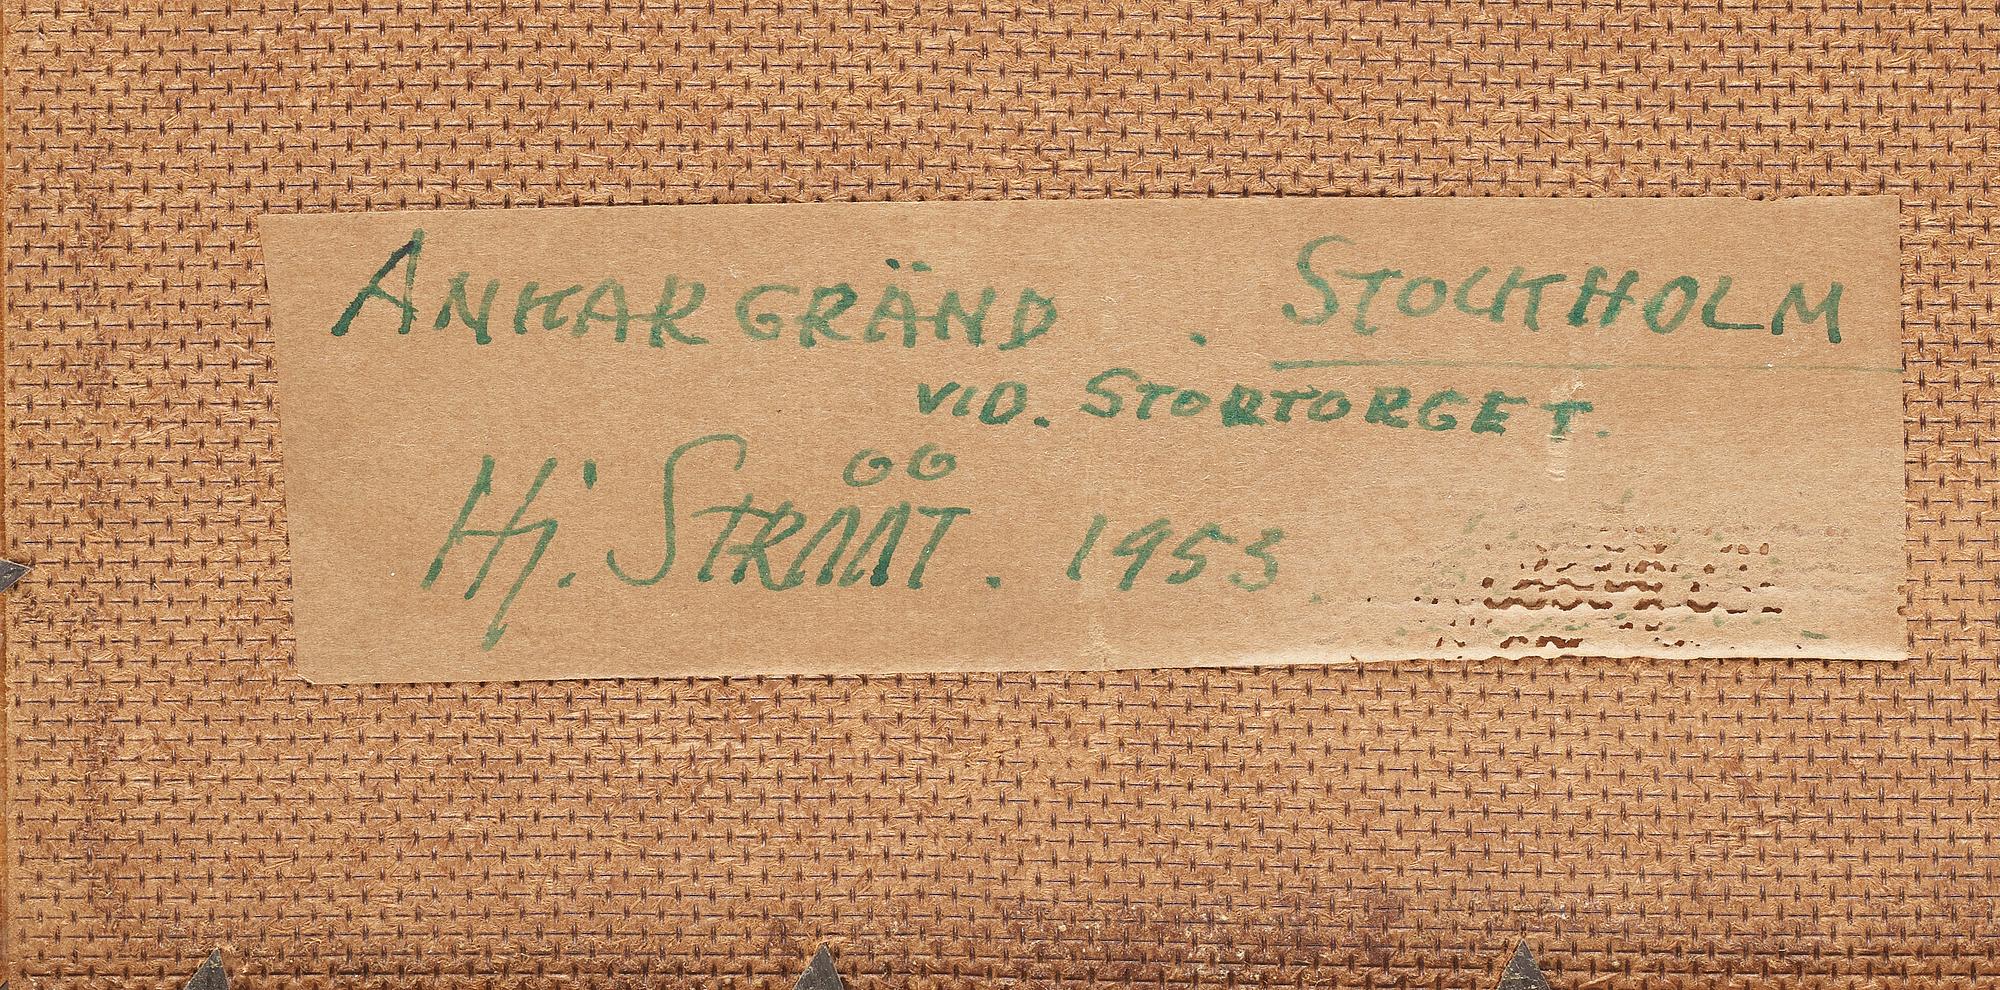 ANKARGRÄND . STOCKHOLM
VID. STORTORGET.
Hj. STRÅÅT. 1953